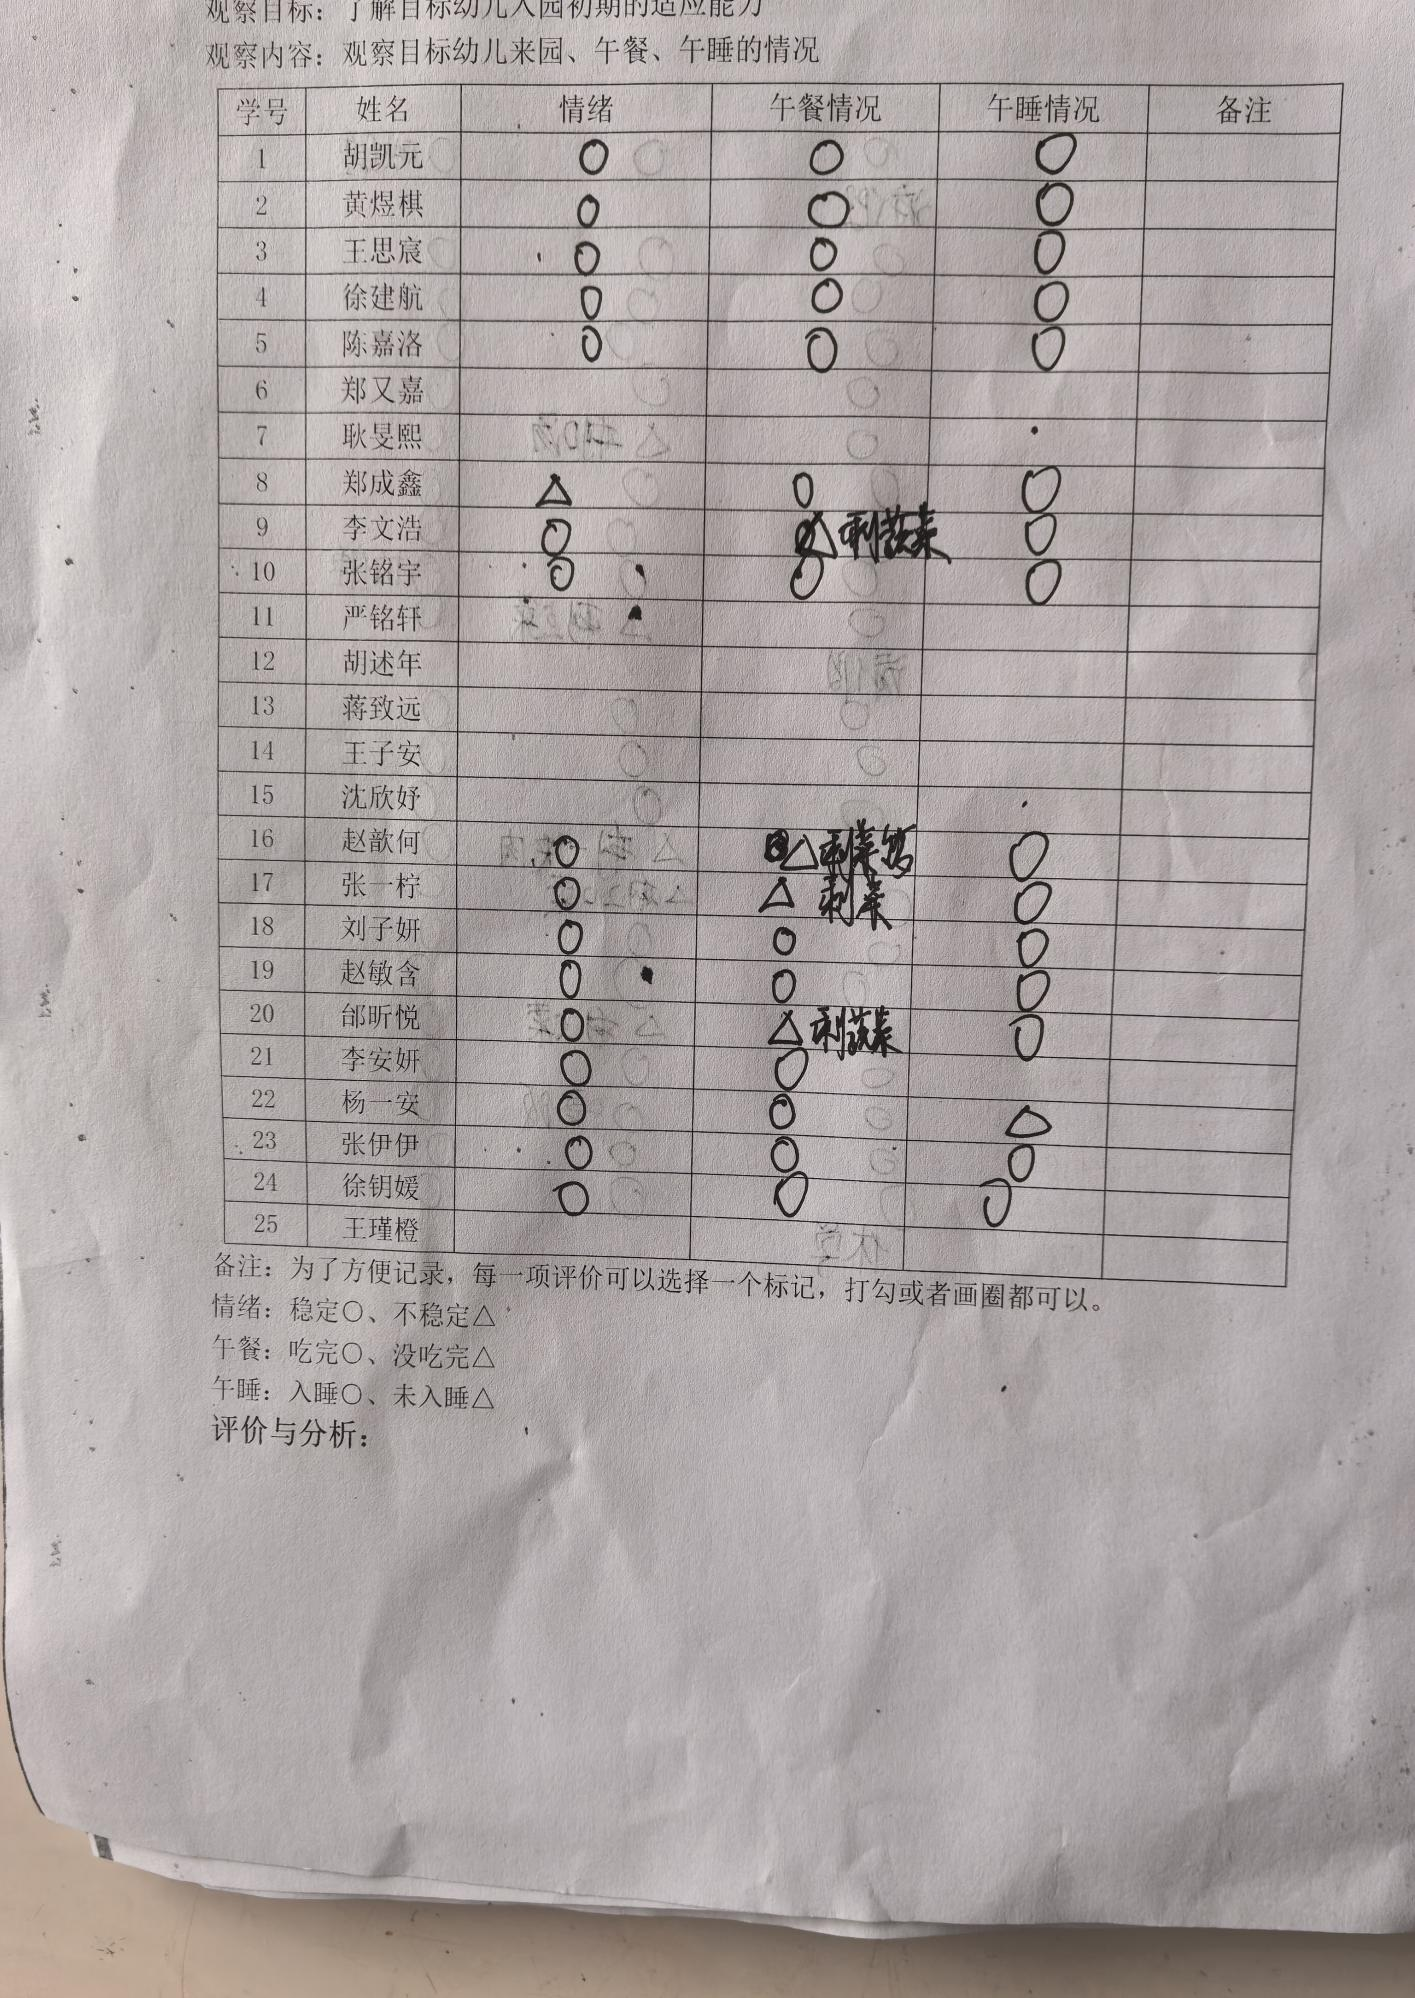 观察目标：了解目标幼儿入园初期的适应能力
观察内容：观察目标幼儿来园、午餐、午睡的情况
学号 姓名 情绪 午餐情况 午睡情况 备注
1 胡凯元 ○ ○ ○
2 黄煜棋 ○ ○ ○
3 王思宸 ○ ○ ○
4 徐建航 ○ ○ ○
5 陈嘉洛 ○ ○ ○
6 郑又嘉
7 耿旻熙
8 郑成鑫 △ ○ ○
9 李文浩 ○ △ 剩蔬菜 ○
10 张铭宇 ○ ○ ○
11 严铭轩
12 胡述年
13 蒋致远
14 王子安
15 沈欣妤
16 赵歆何 ○ △ 剩菜 ○
17 张一柠 ○ △ 剩菜 ○
18 刘子妍 ○ ○ ○
19 赵敏含 ○ ○ ○
20 邰昕悦 ○ △ 剩蔬菜 ○
21 李安妍 ○ ○
22 杨一安 ○ ○ △
23 张伊伊 ○ ○ ○
24 徐钥媛 ○ ○ ○
25 王瑾橙
备注：为了方便记录，每一项评价可以选择一个标记，打勾或者画圈都可以。
情绪：稳定○、不稳定△
午餐：吃完○、没吃完△
午睡：入睡○、未入睡△
评价与分析：